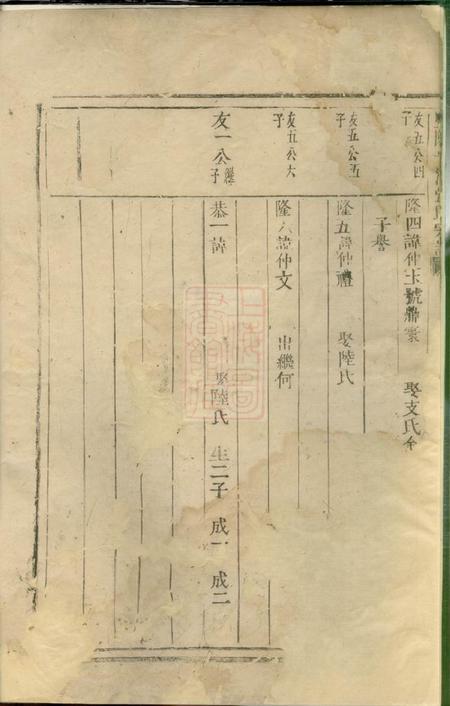 友五公四子
隆四諱仲玉號 娶支氏
子譽
友五公五子
隆五諱仲禮 娶陸氏
友五公六子
隆六諱仲文 出繼何
友一公繼子
恭一諱 娶陸氏 生二子 成一 成二